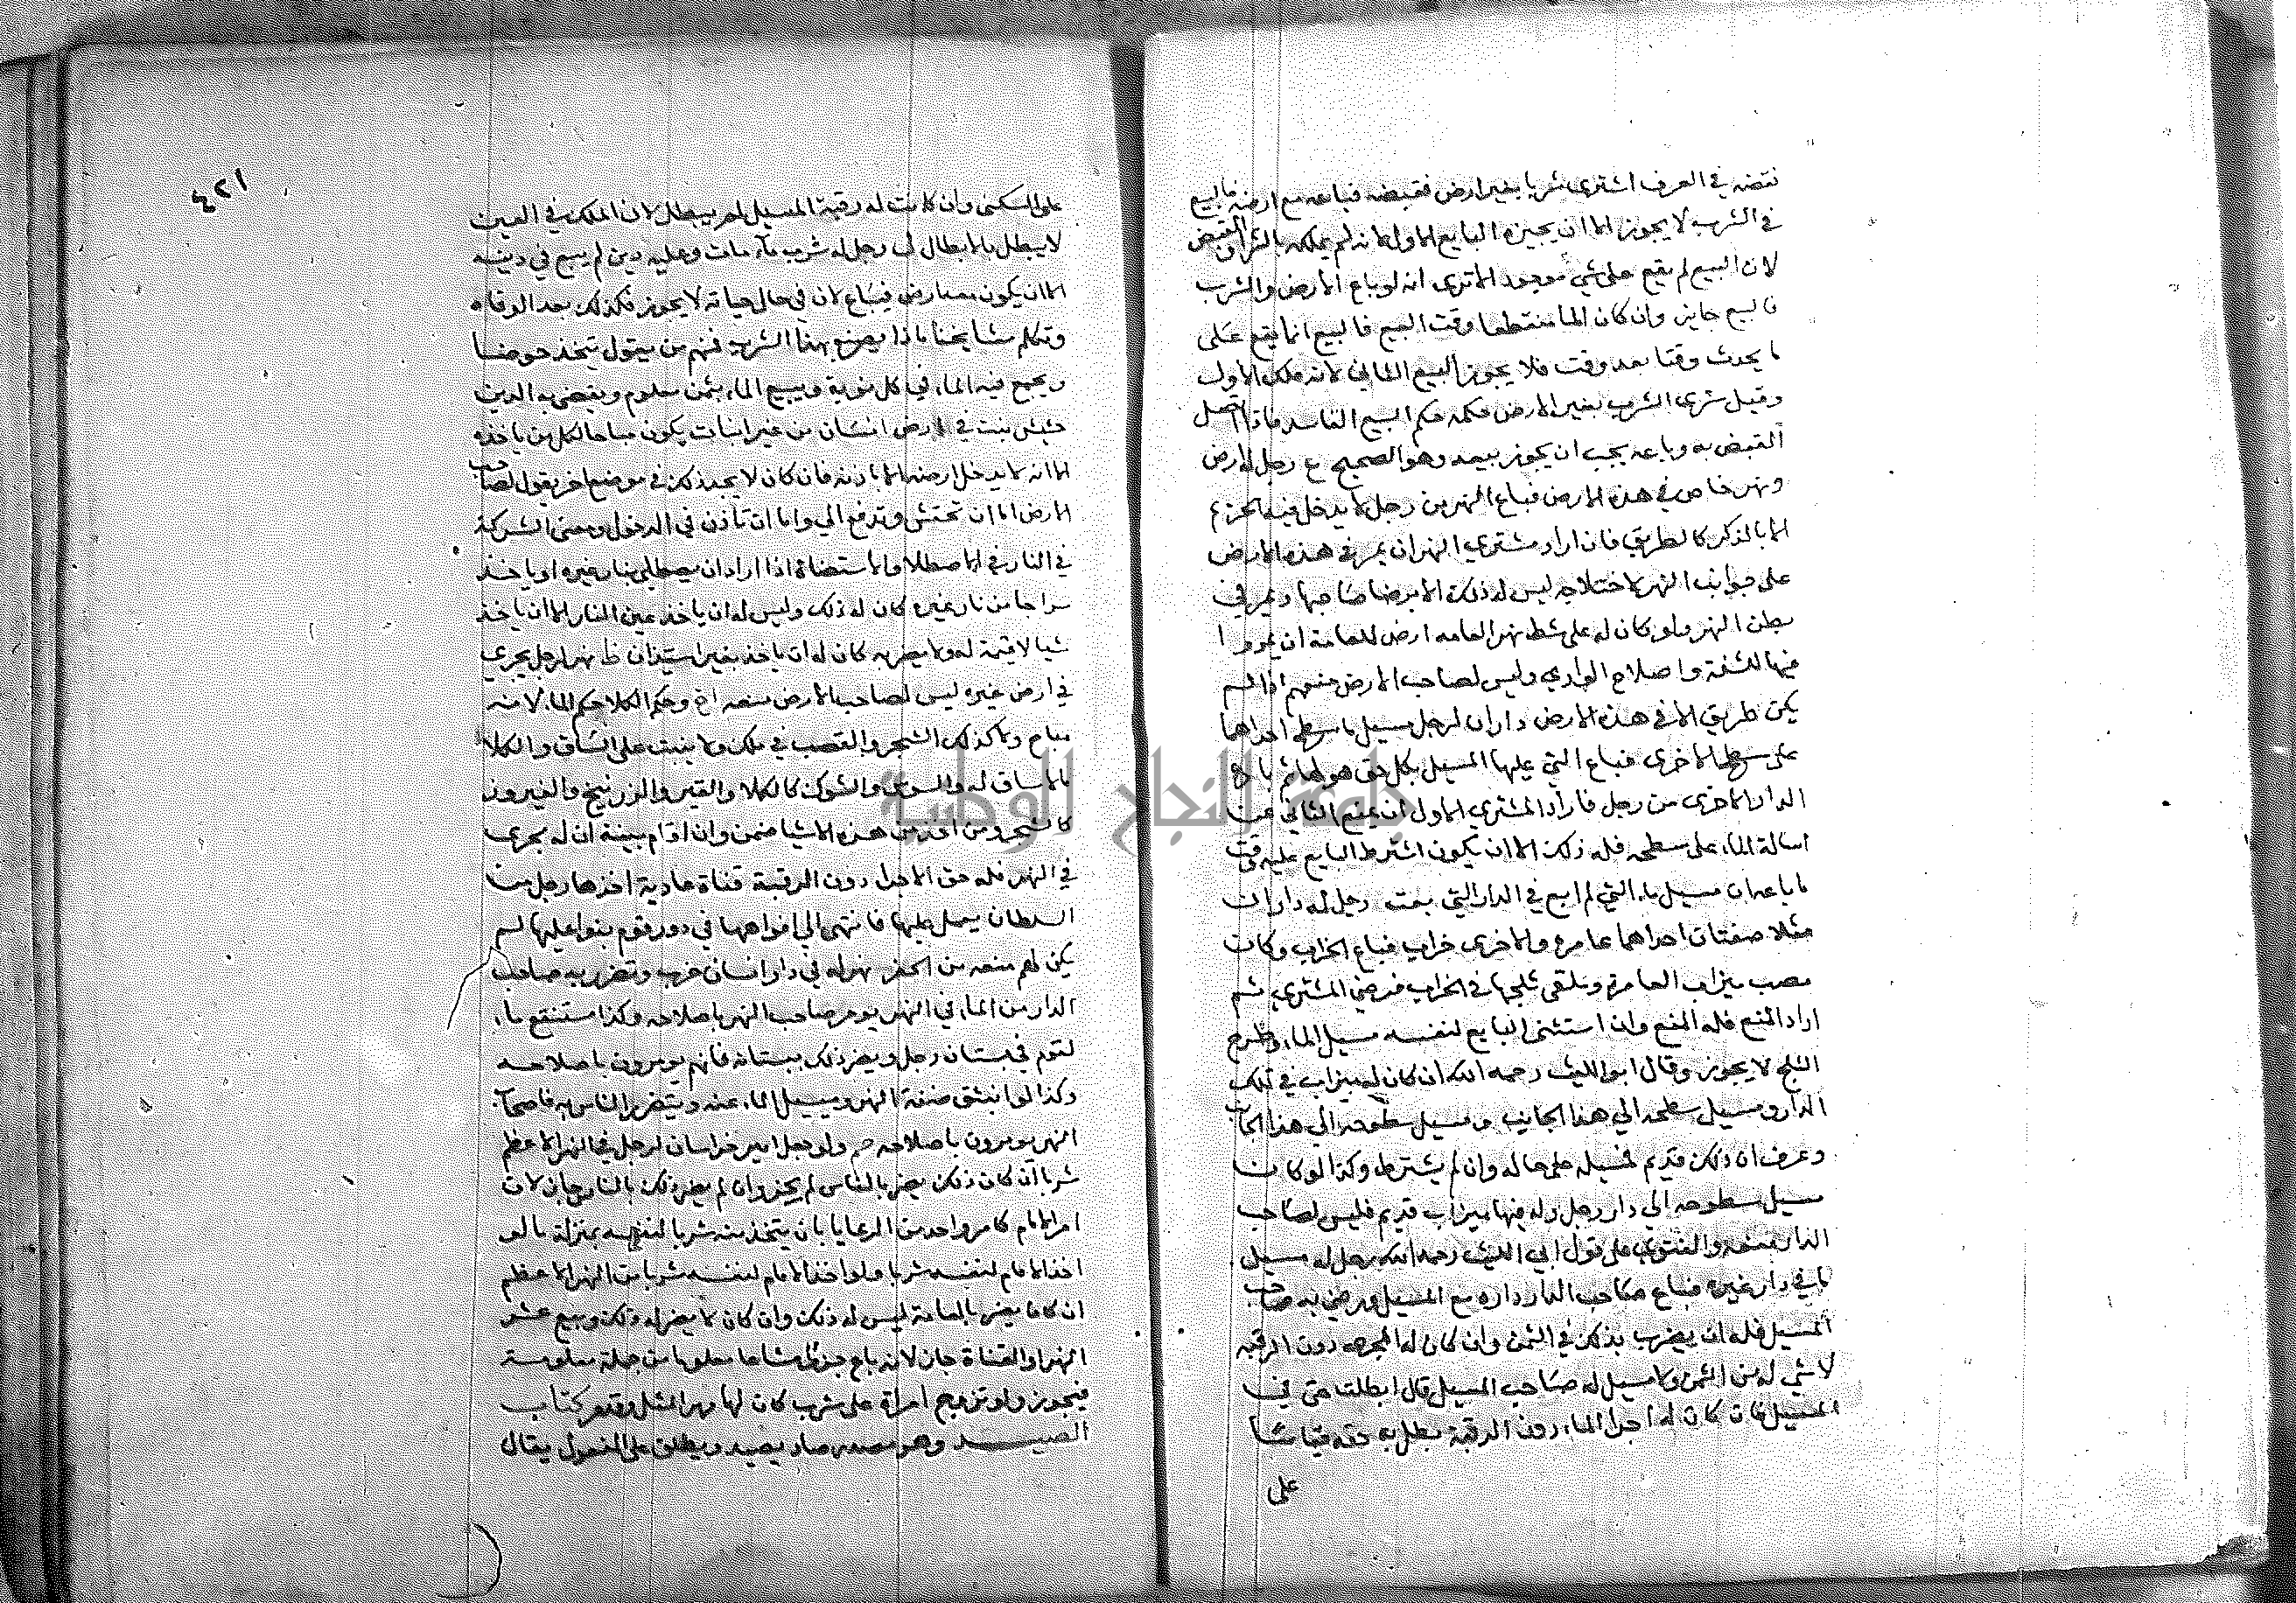 نتضه في العرف اشترى شربا بغير ارض فقبضه فباعه مع ارضه فالبيع
في الشرب لا يجوز الا ان يجيزه البايع الاول لانه لم يملكه بالشراء والقبض
لان البيع لم يقع على شي موجود الا ترى انه لو باع الارض والشرب
فالبيع جايز وان كان الما منقطعا وقت البيع فالبيع انما يقع على
ما يحدث وقتا بعد وقت فلا يجوز البيع الثاني لانه ملك الاول
وقيل شرى الشرب بغير الارض حكمه حكم البيع الفاسد فاذا اتصل
القبض به وباعه يجب ان يجوز بيعه وهو الصحيح ع رجل له ارض
ونهر خاص في هذه الارض فباع النهر من رجل لا يدخل فيه الحريم
الا بالذكر كالطريق فان اراد مشتري النهر ان يمر في هذه الارض
على جوانب النهر لاختلاجه ليس له ذلك الا برضا صاحبها ويمر في
بطن النهر ولو كان له على شط نهر العامه ارض للعامة ان يمروا
فيها للشفة واصلاح الوادي وليس لصاحب الارض منعهم اذا لم
يكن طريق الا في هذه الارض داران لرجل مسيل ما سطح احداهما
على سطح الاخرى فباع التي عليها المسيل بكل حق هو لها ثم باع
الدار الاخرى من رجل فاراد المشتري الاول ان يمنع الثاني عن
اسالة الماء على سطحه فله ذلك الا ان يكون اشترط البايع عليه وقت
ما باعه ان مسيل ماء التي لم ابع في الدار التي بعت رجل له داران
مثلا صفتان احداهما عامره والاخرى خراب فباع الخراب وكان
مصب ميزاب العامره وتلقى ثلجها في الخراب فرضي المشتري ثم
اراد المنع فله المنع وان استثنى البايع لنفسه مسيل الماء وطرح
الثلج لا يجوز وقال ابو الليث رحمه الله ان كان له ميزاب في تلك
الدار ومسيل سطحه الى هذا الجانب ومسيل سطوحه الى هذا الجانب
وعرف ان ذلك قديم فمسيله على حاله وان لم يشترط وكذا لو كان
مسيل سطوحه الى دار رجل وله فيها ميزاب قديم فليس لصاحب
الدار منعه والفتوى على قول ابي الليث رحمه الله رجل له مسيل
ما في دار غيره فباع صاحب الدار داره مع المسيل ورضي به صاحب
المسيل فله ان يضرب بذلك في الثمن وان كان له المجرى دون الرقبه
لا شي له من الثمن ولا مسيل له صاحب المسيل قال ابطلت حقي في
المسيل فان كان له اجرا الماء دون الرقبة بطل به حقه قياسا
على
٤٢١
على السكنى وان كانت له رقبة المسيل لم يبطل لان الملك في العين
لا يبطل بالابطال رجل له شرب ماء مات وعليه دين لم يبع في دينه
الا ان يكون معه ارض فيباع لان في حال حياته لا يجوز فكذلك بعد الوفاه
وتكلم مشايخنا ماذا يصنع بهذا الشرب فمنهم من يقول يتخذ حوضا
ويجمع فيه الماء في كل نوبة ويبيع الماء بثمن معلوم ويقضى به الدين
حشيش نبت في ارض انسان من غير انبات يكون مباحا لكل من ياخذه
الا انه لا يدخل ارضه الا باذنه فان كان لا يجد ذلك في موضع اخر يقول لصاحب
الارض اما ان تحتش وتدفع الي واما ان تاذن في الدخول ومعنى الشركة
في النار في الاصطلا والاستضاة اذا اراد ان يصطلي بنار غيره او ياخذ
سراجا من نار غيره كان له ذلك وليس له ان ياخذ عين النار الا ان ياخذ
شيا لا قيمة له ولا يضر به كان له ان ياخذ بغير استيذان نهر لرجل يجري
في ارض غيره ليس لصاحب الارض منعه وحكم الكلا حكم الماء لانه
مباح ولا كذلك الشجر والقصب في ملك ولا ينبت على الساق والكلا
ما لا ساق له والسوس والشوك كالكلا والقير والزرنيخ والفيروز
كالشجر ومن اخذ من هذه الاشيا ضمن وان اقام بينة ان له مجرى
في النهر فله حق الاجرا دون الرقبة قناة عادية اخذها رجل من
السلطان يعمل عليها فانتهى الى افواهها في دور قوم بنوا عليها لم
يكن لهم منعه من الحفر نهر له في دار انسان خرب وتضرر به صاحب
الدار من الماء في النهر يومر صاحب النهر باصلاحه وكذا مستنقع ماء
لقوم في بستان رجل ويضر ذلك ببستانه فانهم يومرون باصلاحه
وكذا لو انبثق ضفة النهر ويسيل الماء عنه ويتضرر الناس به فاصحاب
النهر يومرون باصلاحه ولو جعل امير خراسان لرجل في النهر الاعظم
شربا ان كان ذلك يضر بالناس لم يجز وان لم يضر ذلك بالناس جاز لان
امر الامام كامر واحد من الرعايا بان يتخذ منه شربا لنفسه بمنزلة ما لو
اخذ الامام لنفسه شربا ولو اخذ الامام لنفسه شربا من النهر الاعظم
ان كان يضر بالعامة ليس له ذلك وان كان لا يضر له ذلك وبيع عشر
النهر والقناة جاز لانه باع جزءا مشاعا معلوما من جملة معلومة
فيجوز ولو تزوج امراة على شرب كان لها مهر المثل وقد مر كتاب
الصيد وهو مصدر صاد يصيد ويطلق على المفعول يقال